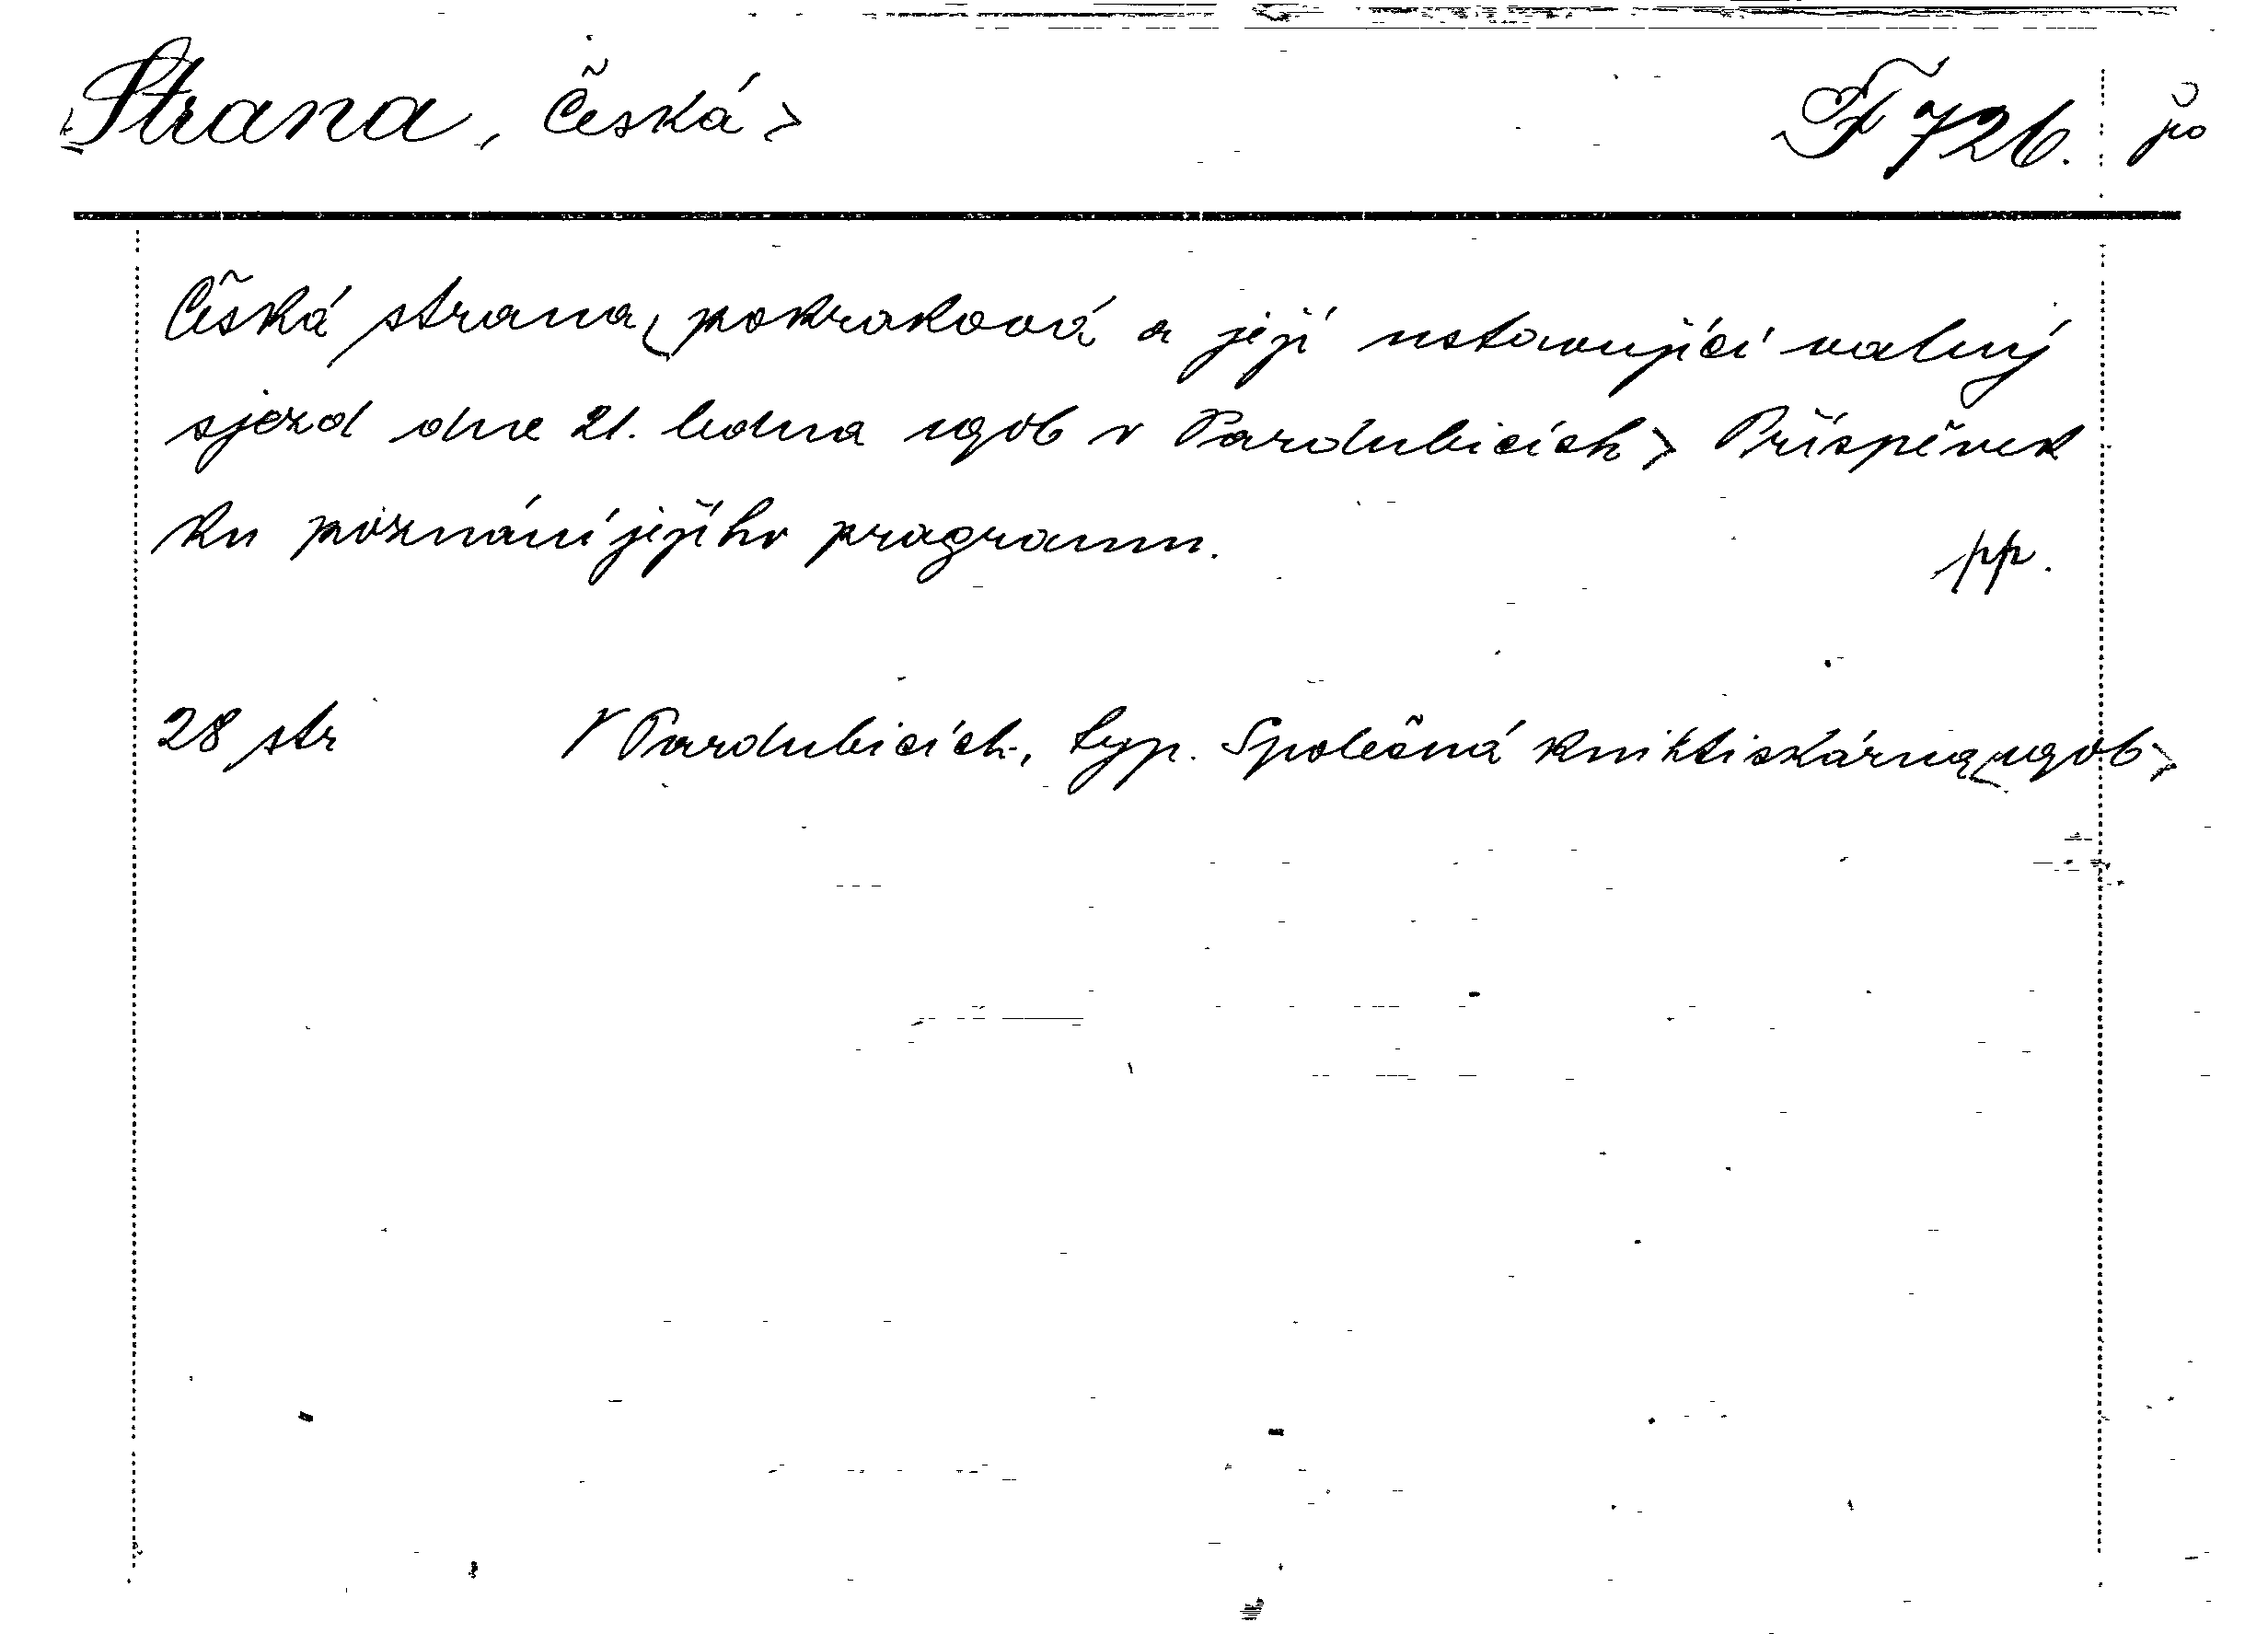 <Strana, Česká> F 726. jio
Česká strana <pokroková a její ustavující valný
sjezd dne 21. ledna 1906 v Pardubicích> Příspěvek
ku poznání jejího programu. pp.
28 str V Pardubicích, typ. Společná knihtiskárna <1906>